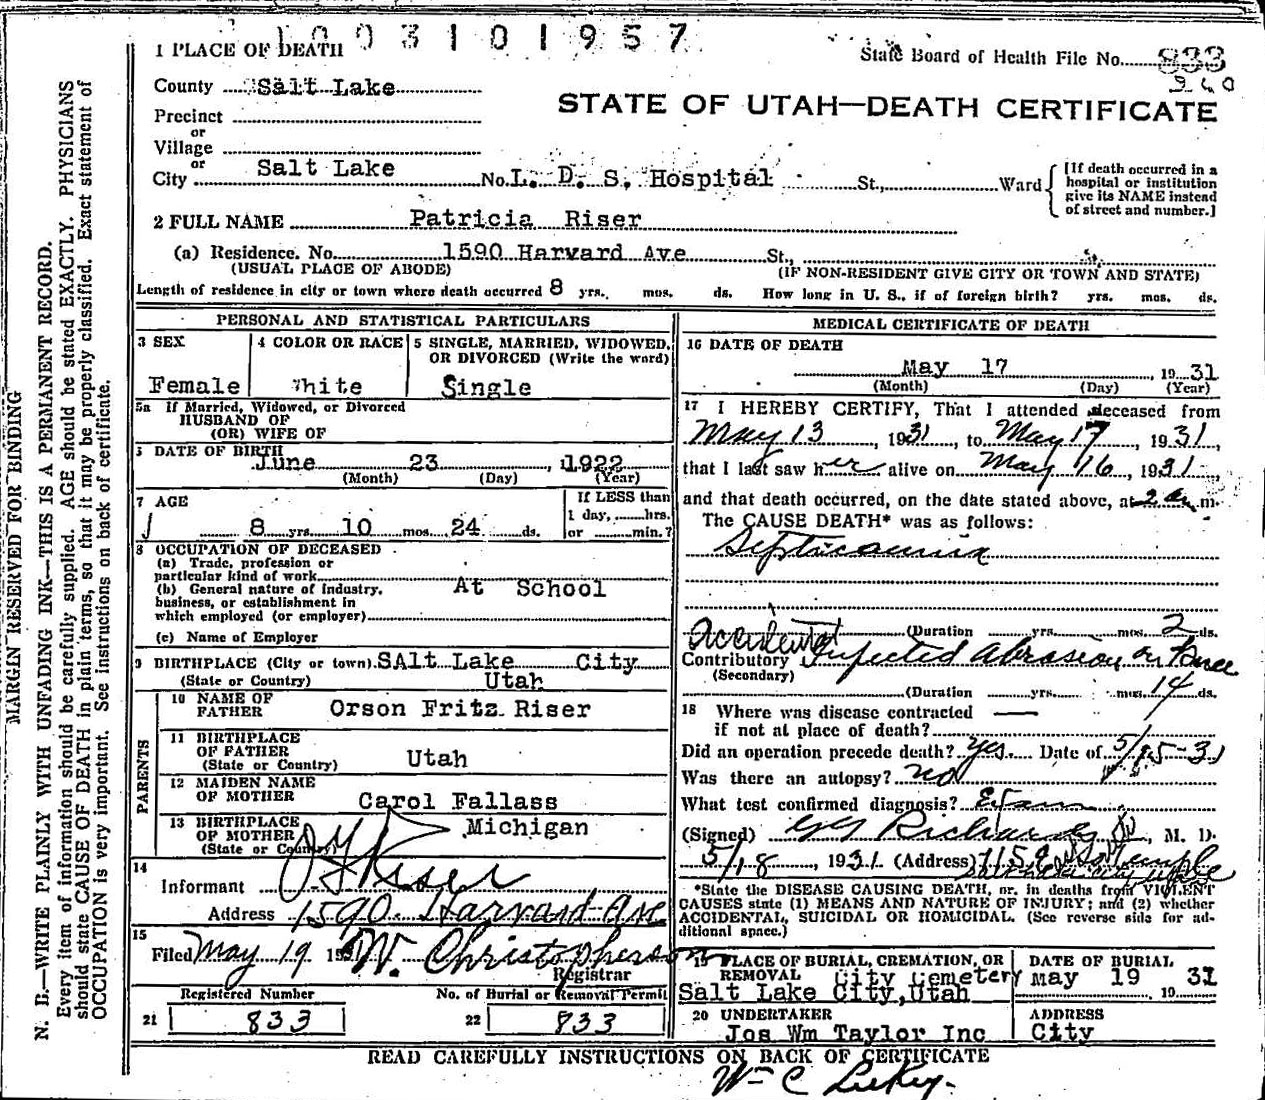 1003101957
1 PLACE OF DEATH
State Board of Health File No. 833
County Salt Lake
STATE OF UTAH—DEATH CERTIFICATE
Precinct
or
Village
or
City Salt Lake No. L. D. S. Hospital St., Ward
[If death occurred in a
hospital or institution
give its NAME instead
of street and number.]
2 FULL NAME Patricia Riser
(a) Residence. No. 1590 Harvard Ave St.,
(USUAL PLACE OF ABODE) (IF NON-RESIDENT GIVE CITY OR TOWN AND STATE)
Length of residence in city or town where death occurred 8 yrs. mos. ds. How long in U. S., if of foreign birth? yrs. mos. ds.
PERSONAL AND STATISTICAL PARTICULARS
3 SEX
Female
4 COLOR OR RACE
White
5 SINGLE, MARRIED, WIDOWED,
OR DIVORCED (Write the word)
Single
5a If Married, Widowed, or Divorced
HUSBAND OF
(OR) WIFE OF
6 DATE OF BIRTH
June 23, 1922
(Month) (Day) (Year)
7 AGE
8 yrs. 10 mos. 24 ds.
If LESS than
1 day, hrs.
or min.?
8 OCCUPATION OF DECEASED
(a) Trade, profession or
particular kind of work
(b) General nature of industry,
business, or establishment in
which employed (or employer)
At School
(c) Name of Employer
9 BIRTHPLACE (City or town) SAlt Lake City
(State or Country) Utah
PARENTS
10 NAME OF
FATHER Orson Fritz Riser
11 BIRTHPLACE
OF FATHER
(State or Country) Utah
12 MAIDEN NAME
OF MOTHER Carol Fallass
13 BIRTHPLACE
OF MOTHER
(State or Country) Michigan
14
Informant O F Riser
Address 1590 Harvard Ave
15
Filed May 19 1931 W. Christopherson
Registrar
Registered Number No. of Burial or Removal Permit
21 833 22 833
MEDICAL CERTIFICATE OF DEATH
16 DATE OF DEATH
May 17 1931
(Month) (Day) (Year)
17 I HEREBY CERTIFY, That I attended deceased from
May 13, 1931, to May 17, 1931,
that I last saw her alive on May 16, 1931,
and that death occurred, on the date stated above, at 2 a. m.
The CAUSE DEATH* was as follows:
Septicaemia
Accidental (Duration yrs. mos. 2 ds.
Contributory Infected Abrasion on Knee
(Secondary)
(Duration yrs. mos. 14 ds.
18 Where was disease contracted —
if not at place of death?
Did an operation precede death? Yes. Date of 5/15-31
Was there an autopsy? no
What test confirmed diagnosis? Exam
(Signed) G G Richards, M. D.
5/18, 1931 (Address) 715 East So Temple
Salt Lake City Utah
*State the DISEASE CAUSING DEATH, or, in deaths from VIOLENT
CAUSES state (1) MEANS AND NATURE OF INJURY; and (2) whether
ACCIDENTAL, SUICIDAL OR HOMICIDAL. (See reverse side for ad-
ditional space.)
19 PLACE OF BURIAL, CREMATION, OR
REMOVAL City Cemetery
Salt Lake City, Utah
DATE OF BURIAL
May 19 1931
20 UNDERTAKER
Jos Wm Taylor Inc
ADDRESS
City
READ CAREFULLY INSTRUCTIONS ON BACK OF CERTIFICATE
Wm C
MARGIN RESERVED FOR BINDING
N. B.—WRITE PLAINLY WITH UNFADING INK—THIS IS A PERMANENT RECORD.
Every item of information should be carefully supplied. AGE should be stated EXACTLY. PHYSICIANS
should state CAUSE OF DEATH in plain terms, so that it may be properly classified. Exact statement of
OCCUPATION is very important. See instructions on back of certificate.